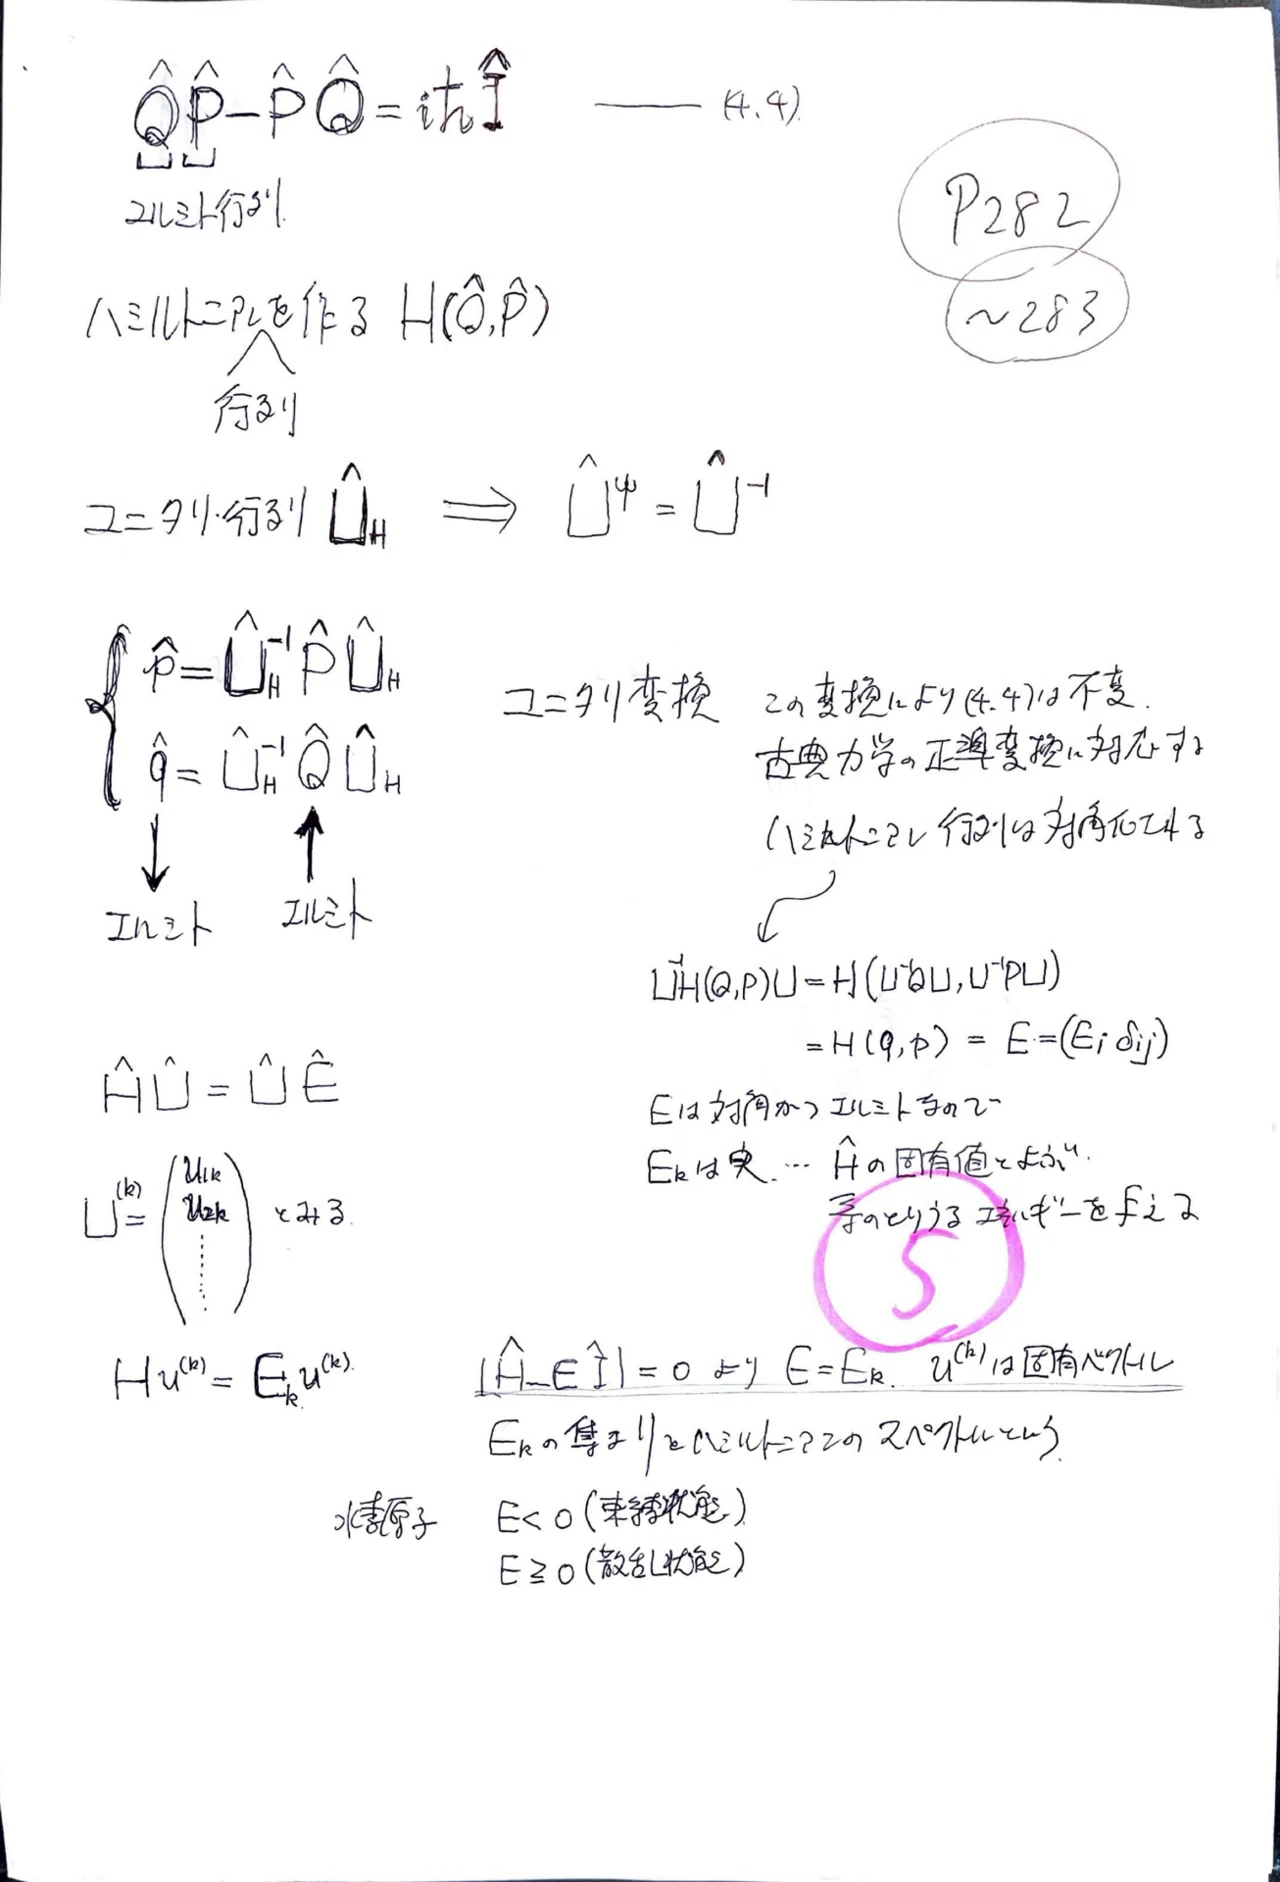 Q̂P̂−P̂Q̂=iħÎ ——— (4.4)
エルミト行列
P282
~283
ハミルトニアンを作る H(Q̂,P̂)
行列
ユニタリ行列 Û_H ⟹ Û^ψ = Û^-1
p̂=Û_H^-1 P̂ Û_H
q̂= Û_H^-1 Q̂ Û_H
エルミト エルミト
ユニタリ変換 この変換により(4.4)は不変.
古典力学の正準変換に対応する
ハミルトニアン行列は対角化できる
U^-1H(Q,P)U=H(U^-1QU,U^-1PU)
=H(q,p) = E=(E_i δ_ij)
Eは対角かつエルミトなので
E_kは実… Ĥの固有値とよぶ.
系のとりうるエネルギーを与える
5
ĤÛ=ÛÊ
U^(k)= (u_1k
u_2k
⋮) とみる
Hu^(k)=E_k u^(k).
|Ĥ−EÎ|=0 より E=E_k. u^(k)は固有ベクトル
E_kの集まりをハミルトニアンのスペクトルという
水素原子 E<0(束縛状態)
E≧0(散乱状態)